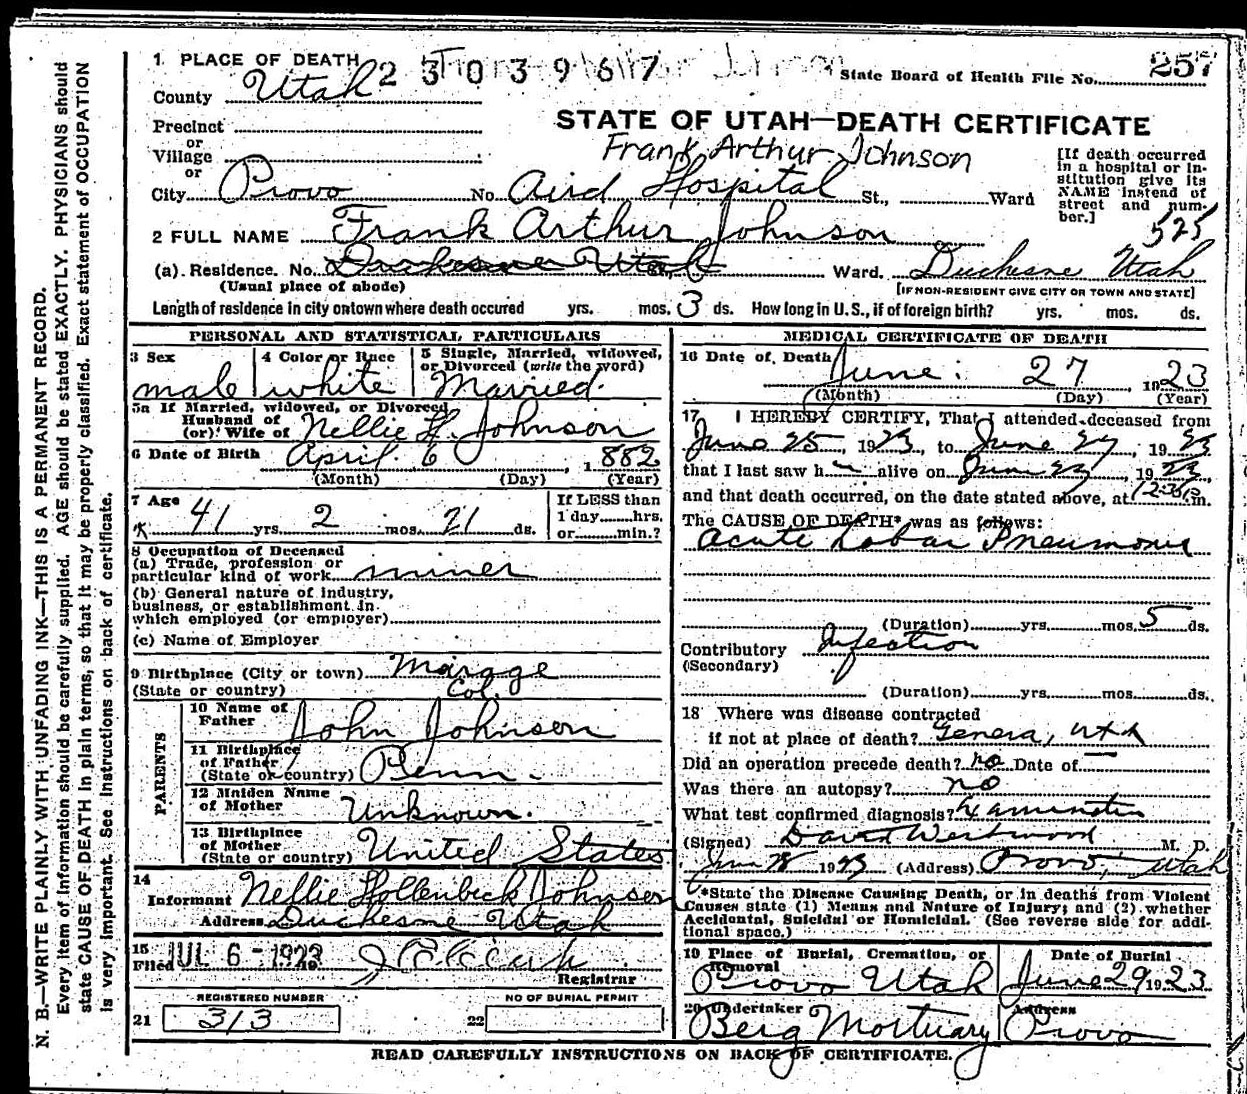 1 PLACE OF DEATH 2303967 Johnson State Board of Health File No. 257
County Utah
STATE OF UTAH—DEATH CERTIFICATE
Precinct
or
Village
or
Frank Arthur Johnson
City Provo No. Aird Hospital St., Ward
[If death occurred in a hospital or institution give its NAME instead of street and number.]
525
2 FULL NAME Frank Arthur Johnson
(a). Residence. No. Duchesne Utah Ward. Duchesne Utah
(Usual place of abode) [IF NON-RESIDENT GIVE CITY OR TOWN AND STATE]
Length of residence in city or town where death occured yrs. mos. 3 ds. How long in U. S., if of foreign birth? yrs. mos. ds.
PERSONAL AND STATISTICAL PARTICULARS
3 Sex male
4 Color or Race white
5 Single, Married, widowed, or Divorced (write the word) Married.
5a If Married, widowed, or Divorced
Husband of
(or) Wife of Nellie H. Johnson
6 Date of Birth April 6, 1882
(Month) (Day) (Year)
7 Age 41 yrs. 2 mos. 21 ds.
If LESS than
1 day hrs.
or min.?
8 Occupation of Deceased
(a) Trade, profession or
particular kind of work miner
(b) General nature of industry,
business, or establishment in
which employed (or employer)
(c) Name of Employer
9 Birthplace (City or town)
(State or country) Col.
PARENTS
10 Name of Father John Johnson
11 Birthplace of Father (State or country) Penn.
12 Maiden Name of Mother Unknown.
13 Birthplace of Mother (State or country) United States
14
Informant Nellie Hollenbeck Johnson
Address Duchesne Utah
15
Filed JUL 6 - 1923 19
Registrar
REGISTERED NUMBER
21 313
NO OF BURIAL PERMIT
22
MEDICAL CERTIFICATE OF DEATH
16 Date of Death June 27, 1923
(Month) (Day) (Year)
17 I HEREBY CERTIFY, That I attended deceased from
June 25, 1923, to June 27, 1923
that I last saw h alive on June 27, 1923
and that death occurred, on the date stated above, at m.
The CAUSE OF DEATH* was as follows:
Acute Lobar Pneumonia
(Duration) yrs. mos. 5 ds.
Contributory Infection
(Secondary)
(Duration) yrs. mos. ds.
18 Where was disease contracted
if not at place of death? Geneva, Utah
Did an operation precede death? no Date of —
Was there an autopsy? no
What test confirmed diagnosis? Examination
(Signed) David Westwood M. D.
June 28 1923 (Address) Provo, Utah
*State the Disease Causing Death, or in deaths from Violent
Causes state (1) Means and Nature of Injury; and (2) whether
Accidental, Suicidal or Homicidal. (See reverse side for addi-
tional space.)
19 Place of Burial, Cremation, or Removal Provo Utah
Date of Burial June 29 1923
20 Undertaker Berg Mortuary
Address Provo
READ CAREFULLY INSTRUCTIONS ON BACK OF CERTIFICATE.
N. B.—WRITE PLAINLY WITH UNFADING INK—THIS IS A PERMANENT RECORD.
Every item of information should be carefully supplied. AGE should be stated EXACTLY. PHYSICIANS should
state CAUSE OF DEATH in plain terms, so that it may be properly classified. Exact statement of OCCUPATION
is very important. See instructions on back of certificate.